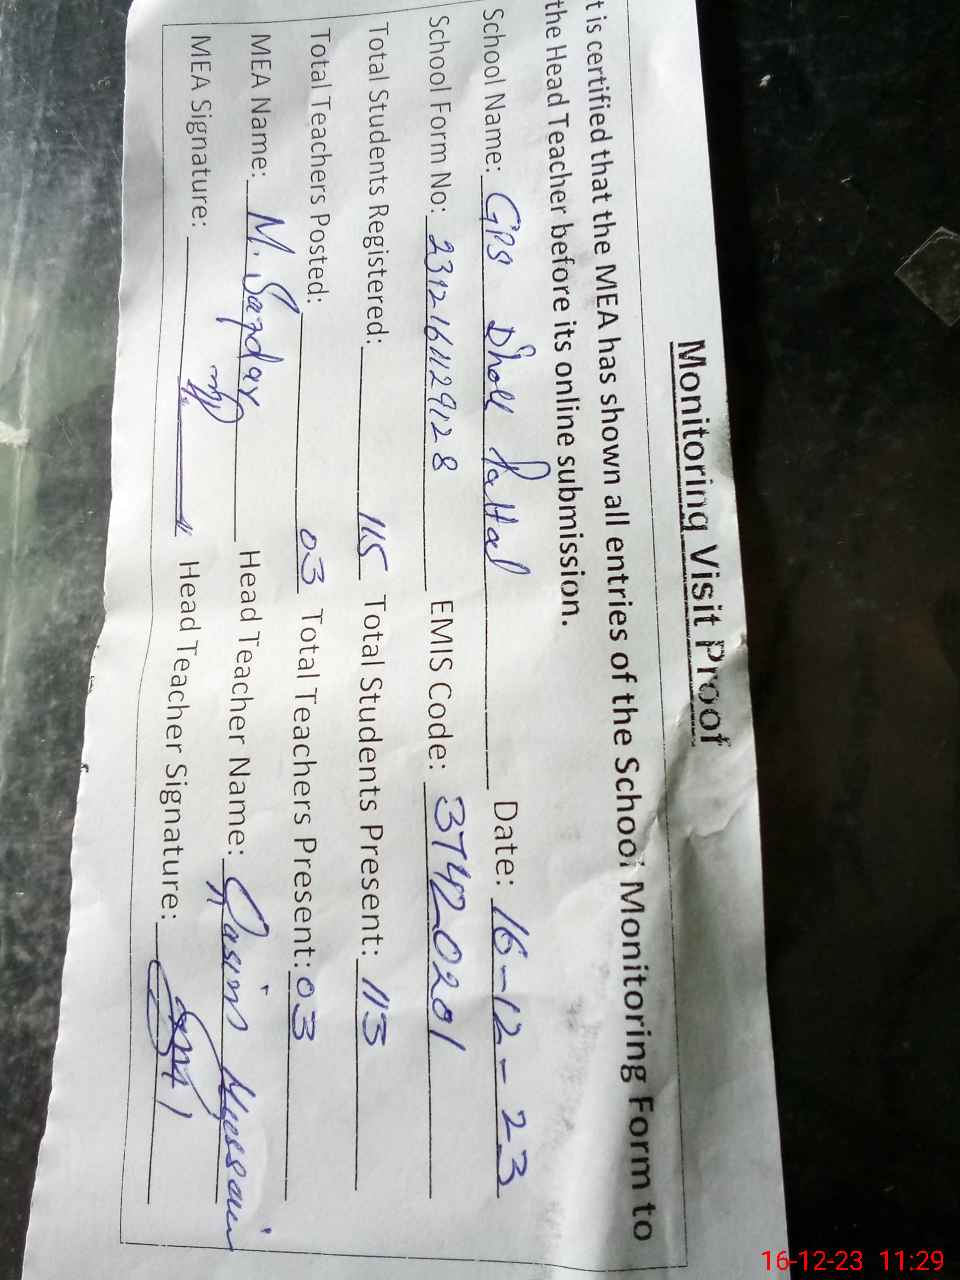 Monitoring Visit Proof
t is certified that the MEA has shown all entries of the School Monitoring Form to
the Head Teacher before its online submission.
School Name: GPS Dhok Pattal Date: 16-12-23
School Form No: 2312161129128 EMIS Code: 37420201
Total Students Registered: 115 Total Students Present: 113
Total Teachers Posted: 03 Total Teachers Present: 03
MEA Name: M. Safdar Head Teacher Name: Qasim Hussain
MEA Signature: Head Teacher Signature:
16-12-23 11:29